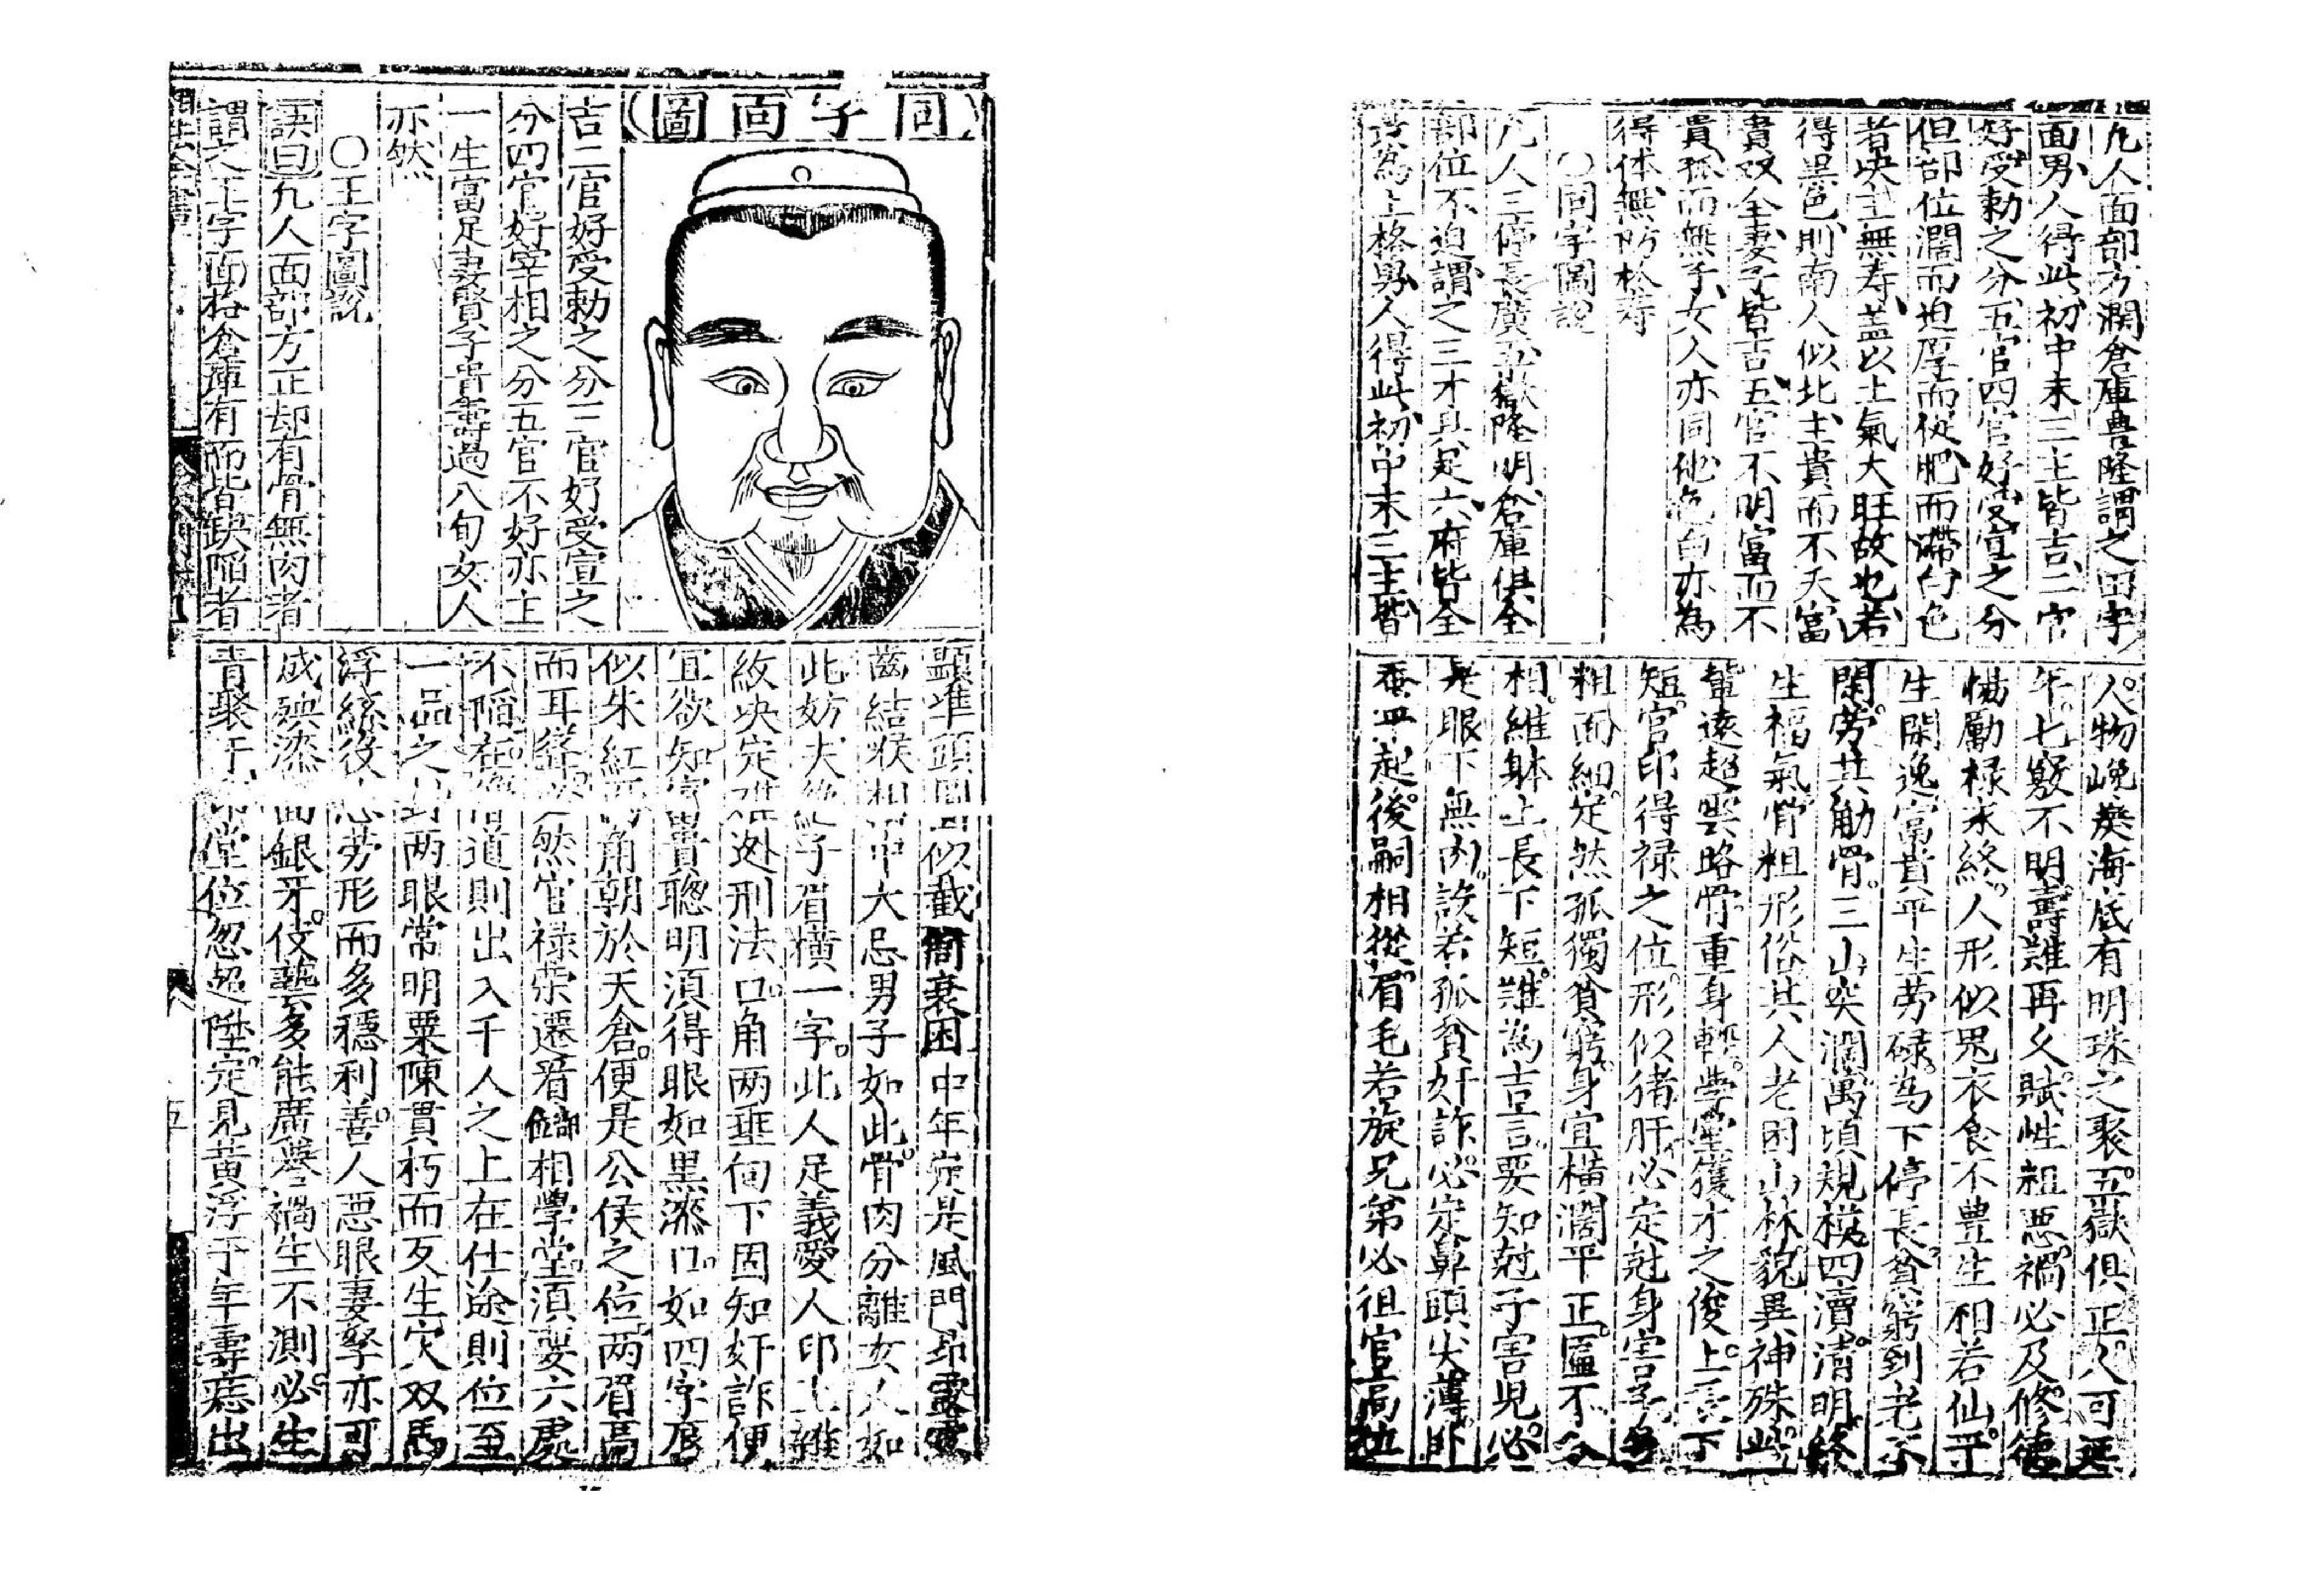 凡人面部方濶倉庫豊隆謂之田字
面男人得此初中末三主皆吉二官
好受勅之分五官四官好受宣之分
但部位濶而迫厚而促肥而滯白色
者央主無寿盖以土氣大旺故也若
得黑色則南人似北主貴而不夭富
貴双全妻子皆吉五官不明富而不
貴孤而無子女人亦同他色白亦為
得体無妨於寿
〇同字圖說
凡人三停長廣五嶽隆明倉庫俱全
部位不迫謂之三才具足六府皆全
為上格男人得此初中末三主皆
人。物晚癸海底有明珠之聚。五嶽俱正。人可延
年。七竅不明。壽難再久。賦性粗悪。禍必及。修德
惕勵。禄永終。人形似鬼。衣食不豊。生相若仙。平
生閑逸。富貴平生勞碌。為下停長。貧窮到老不
閑。勞其觔骨。三山突濶。萬頃規模。四瀆清明。終
生福氣。骨粗形俗。其人老困山林。貌異神殊。此
輩遠超雲路。骨重身輕。學堂獲才之俊。上長下
短。官印得禄之位。形似猪肝。必定尅身害子。身
粗面細。定然孤獨貧窮。身宜橫濶平正。區不入
相。維躰上長下短。誰為吉言。要知尅子害兒。必
是眼下無肉。設若孤貧奸詐。必定鼻頭尖薄。卧
蚕平起。後嗣相從。眉毛若旋。兄弟必徂。官局位
同字面圖
吉二官好受勅之分三官好受宣之
分四官好宰相之分五官不好亦主
一生富足妻賢子貴壽過八旬女人
亦然
〇王字圖說
訣曰凡人面部方正却有骨無肉者
謂之王字面格倉庫有而皆缺陷者
顯準頭圓似截筒衰困中年定是風門昂露露
齒結喉相中大忌男子如此。骨肉分離女人如
此妨夫絶子眉橫一字。此人足義愛人印上雜
紋决定迍刑法。口角两垂向下固知奸詐便
宜欲知富貴聰明須得眼如黑漆。口。如四字唇
似朱紅两角朝於天倉。便是公侯之位两眉高
而耳聳。然官禄榮遷看相學堂。須要六處
不陷。在道則出入千人之上在仕途則位至
一品之封两眼常明粟陳貫朽而反生穴双馬
浮絲役心勞形而多穩利。善。人悪眼妻孥亦可
成殃漆面銀牙。伎藝多能廣譽禍生不測必。生
青聚于印堂位忽超陞。定見黄浮于年壽忘出